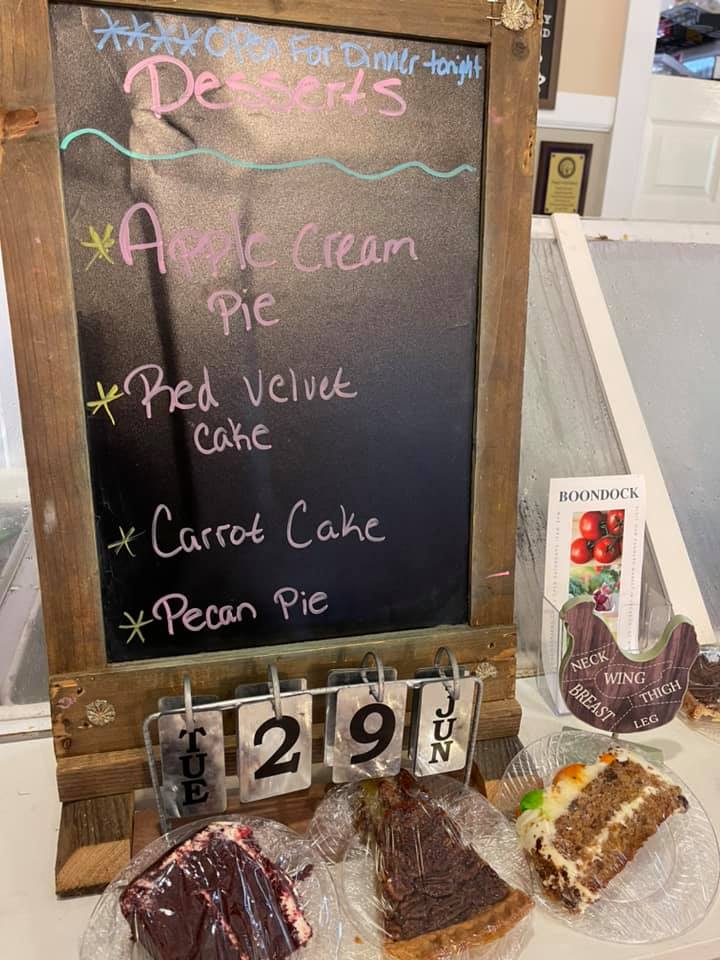 ****Open For Dinner tonight
Desserts
*Apple Cream
Pie
*Red Velvet
Cake
*Carrot Cake
*Pecan Pie
BOONDOCK
NECK
WING
BREAST
THIGH
LEG
TUE
29
JUN